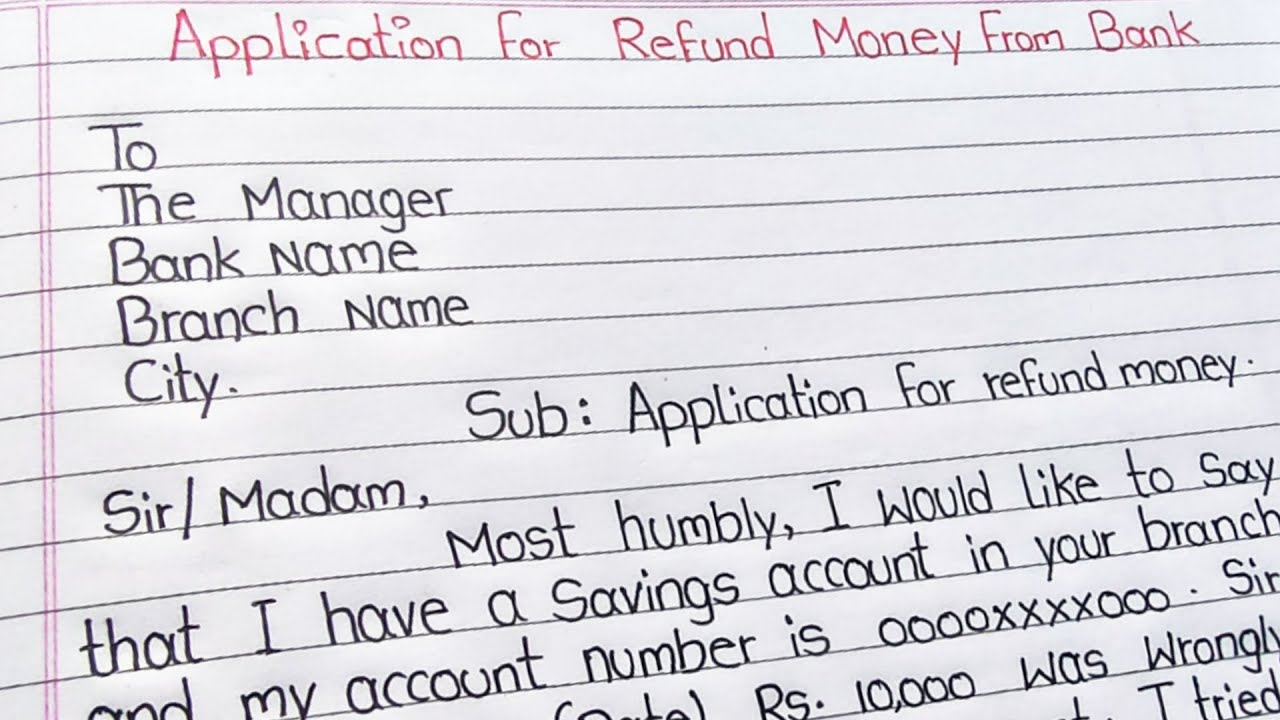 Application For Refund Money From Bank
To
The Manager
Bank Name
Branch Name
City.
Sub: Application For refund money.
Sir/ Madam,
Most humbly, I would like to Say
that I have a Savings account in your branch
and my account number is 0000xxxx000. Sir
(Date) Rs. 10,000 was Wrongly
I tried